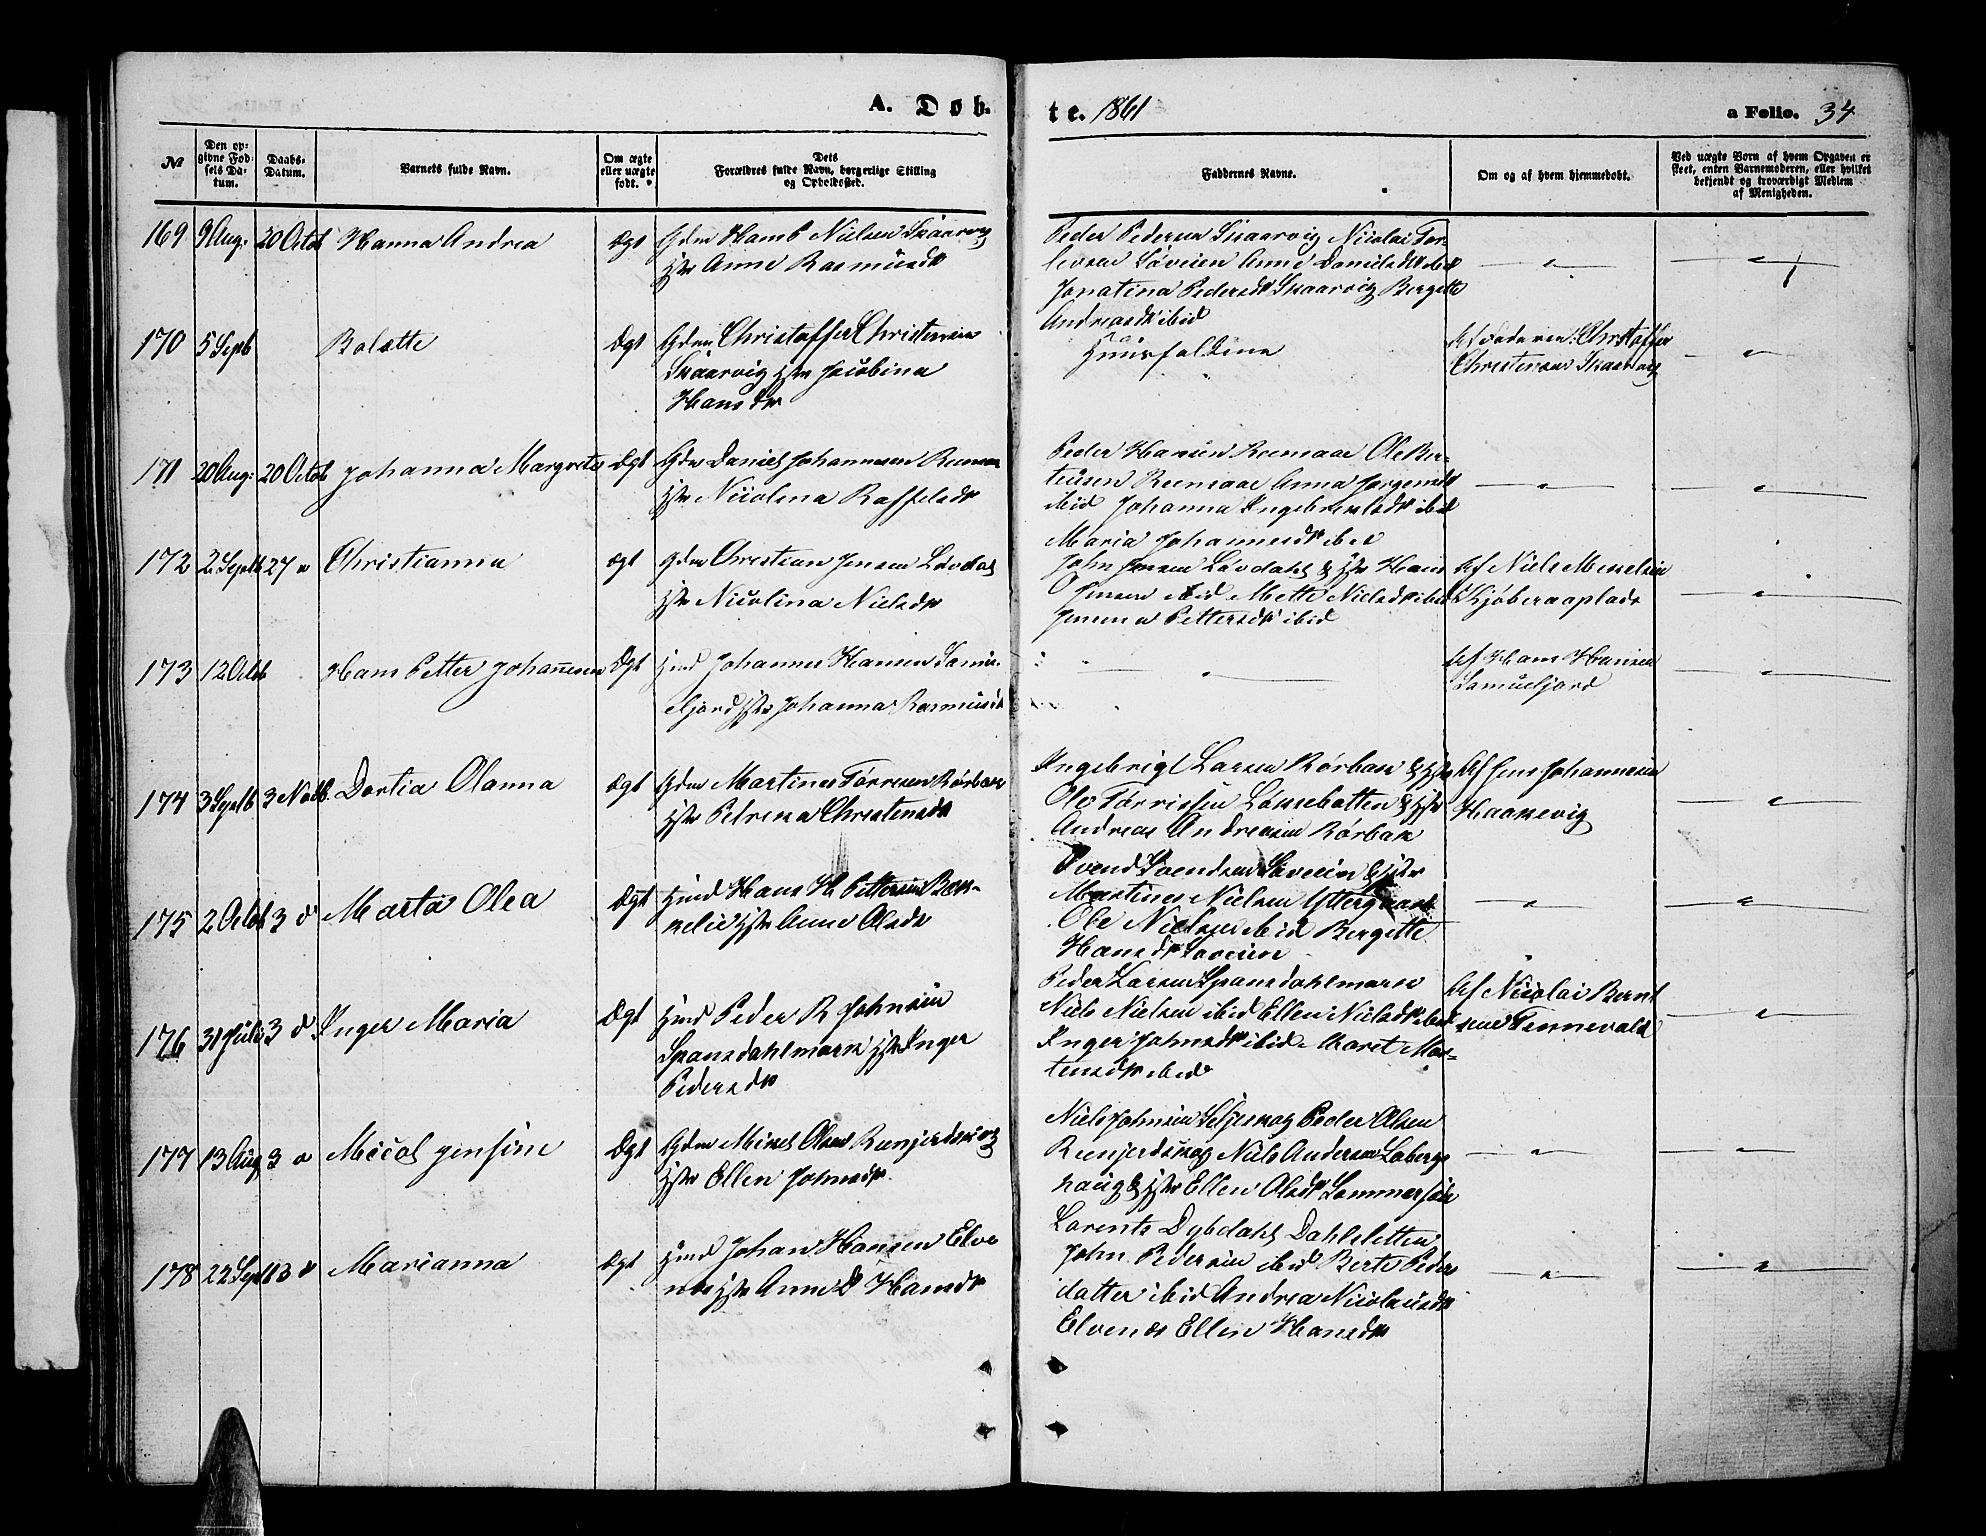 A. Døb-
te. 1861
a Folio. 34
№
Den op-
givne Fød-
sels Da-
tum.
Daabs-
Datum.
Barnets fulde Navn.
Om ægte
eller uægte
født.
Dets
Forældres fulde Navn, borgerlige Stilling
og Opholdssted.
Faddernes Navne.
Om og af hvem hjemmedøbt.
Ved uægte Børn af hvem Opgaven er
skeet, enten Barnemoderen, eller hvilket
bekjendt og troværdigt Medlem
af Menigheden.
169 9 Aug: 20 Octob Hanna Andrea ægt Gdm Hans P Nielsen Skaarvig
Hstr Anne Rasmusdr
Peder Pedersen Skaarvig Nicolai Tor-
levsen Løveien Anne Danielsdr ibid
Jonatina Pedersdr Skaarvig Bergitte
Andreasdr ibid
170 5 Septb Bolette Ægt Gdm Christoffer Christensen
Skaarvig Hstr Jacobina
Hansdr
Huusfoldene
Af Faderen: Christoffer
Christensen Skaarvig
171 20 Aug: 20 Octob Johanna Margrete Ægt Gdm Daniel Johannesen
Hstr Nicolina Raffelsdr
Peder Hansen Ole Ber-
teusen Anna Jørgensdr
ibid Johanna Ingebrectsdr ibid
Maria Johannesdr ibid
172 2 Septb 27 " Christianna ægt Gdm Christian Jensen Løvdal
Hstr Nicolina Nielsdr
John Jensen Løvdahl & Hstr Hans
Jensen ibid Mette Nielsdr ibid
Jensena Pettersdr ibid
Af Niels Mikkelsen
173 12 Octb Hans Petter Johannesen Ægt Hmd Johannes Hansen Samu-
elfjord Hstr Johanna Rasmusdr
Af Hans Hansen
Samuelfjord
174 3 Septb 3 Novb. Dortia Olanna ægt Gdm Martines Tørresen Rørbak
Hstr Petrina Christensdr
Ingebrigt Larsen Rørbak & Hstr
Ole Tørrissen Løksebotten & Hstr
Andreas Andreasen Rørbak
Af Jens Johannesen
Haakevig
175 2 Octb 3 d Marta Olea Ægt Hmd Hans H. Pettersen Bæk-
kelid Hstr Anne Olsdr
Svend Svendsen Løveien & Hstr
Martines Nielsen Yttergaard
Ole Nielsen ibid Bergitte
Hansdr Løveien
176 31 Juli 3 d Inger Maria Ægt Hmd Peder R Johnsen
Spansdahlmark Hstr Inger
Pedersdr
Peder Larsen Spansdahlmark
Niels Nielsen ibid Ellen Nielsdr ibid
Inger Johnsdr ibid Maret Mor-
tensdr ibid
Af Nicolai Bernt
sen Tennevold
177 13 Aug, 3 " Micol Jensine Ægt Gdm Mikel Olsen Renjerdskog
Hstr Ellen Johnsdr
Niels Johnsen Seljeskog Peder Olsen
Renjerdskog Niels Andersen Laberg
haug & Hstr Ellen Olsdr Sommersæt
178 22 Septb 3 d Marianna Ægt Hmd Johan Hansen Elve
næs Hstr Anne D Hansdr
Lorents Dybdahl Dahlsletten
John Pedersen ibid Berte Peders
datter ibid Andrea Nicolaisdr
Elvenæs Ellen Hansdr